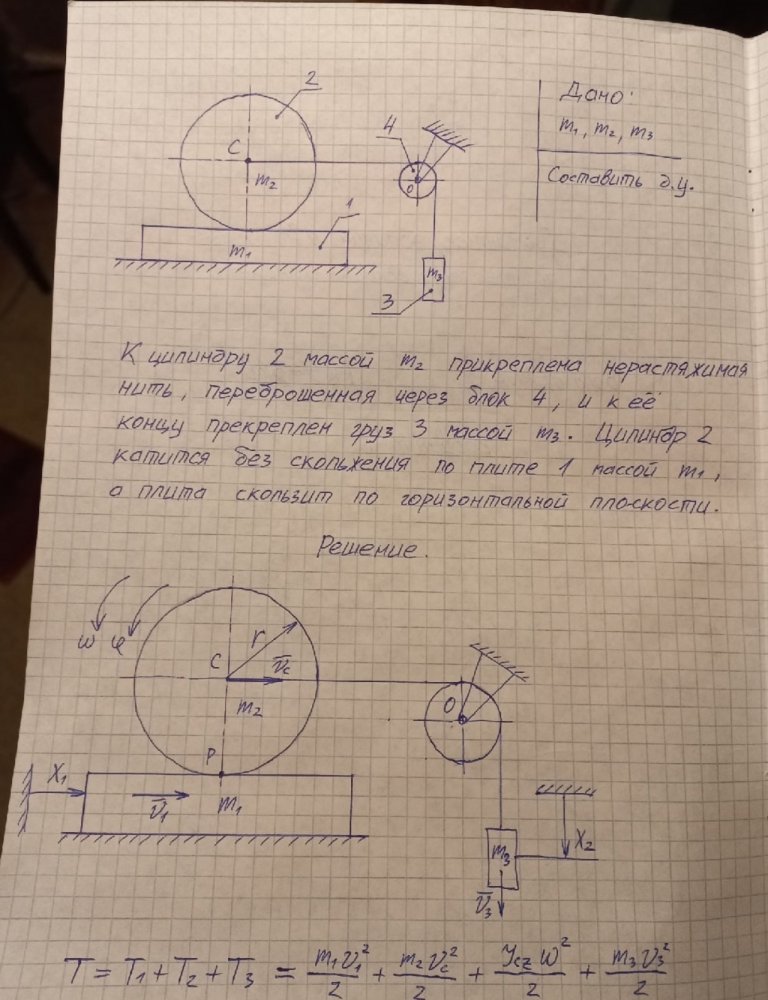 2
C
m₂
4
O
1
m₁
m₃
3
Дано:
m₁, m₂, m₃
Составить д.у.
К цилиндру 2 массой m₂ прикреплена нерастяжимая
нить, переброшенная через блок 4, и к её
концу прекреплен груз 3 массой m₃. Цилиндр 2
катится без скольжения по плите 1 массой m₁,
а плита скользит по горизонтальной плоскости.
Решение.
ω φ
r
C
v̅c
m₂
O
P
X₁
v̅₁
m₁
m₃
X₂
v̅₃
T = T₁ + T₂ + T₃ = m₁v₁²/2 + m₂v_c²/2 + J_cz ω²/2 + m₃v₃²/2